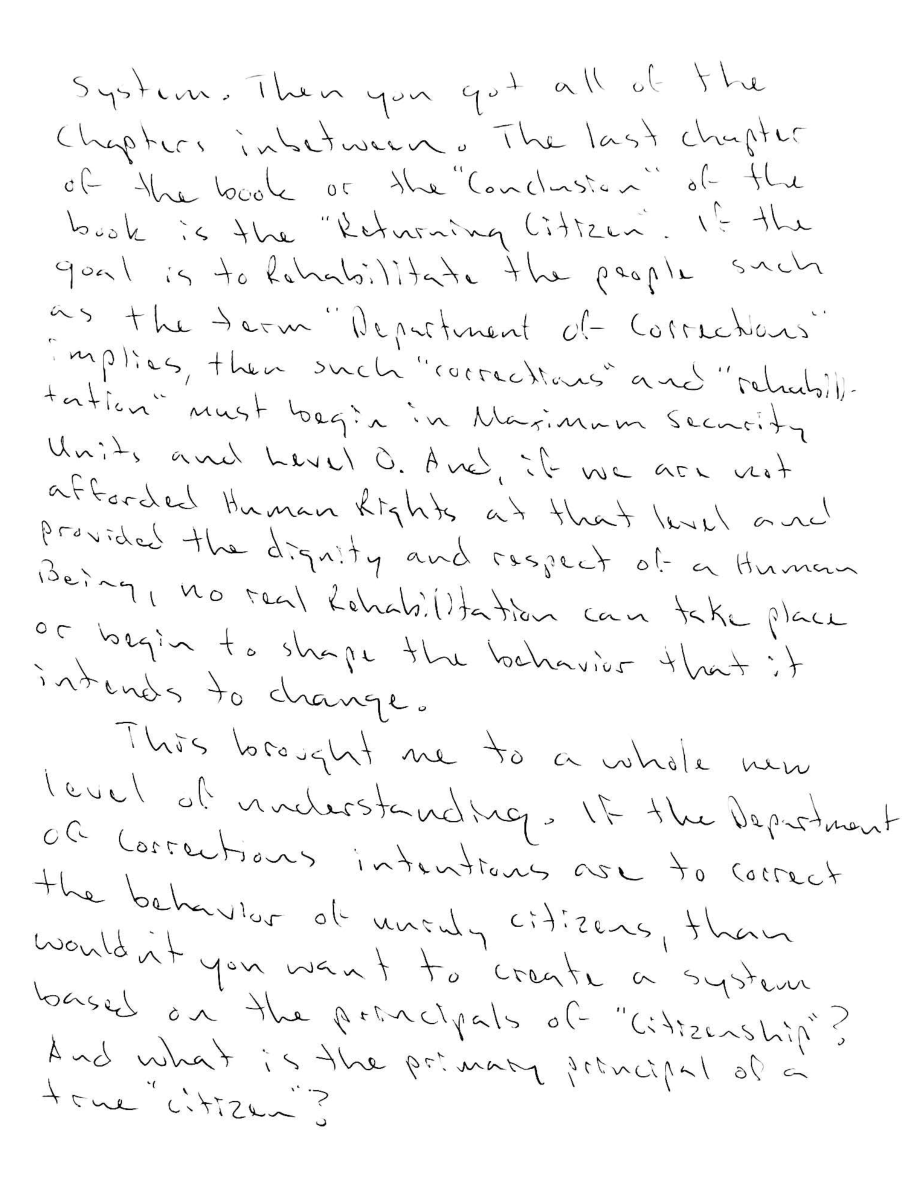 System. Then you got all of the
Chapters inbetween. The last chapter
of the book or the "Conclusion" of the
book is the "Returning Citizen". If the
goal is to Rehabilitate the people such
as the term "Department of Corrections"
implies, then such "corrections" and "rehabili-
tation" must begin in Maximum Security
Units and Level O. And, if we are not
afforded Human Rights at that level and
provided the dignity and respect of a Human
Being, no real Rehabilitation can take place
or begin to shape the behavior that it
intends to change.
This brought me to a whole new
level of understanding. If the Department
of Corrections intentions are to correct
the behavior of unruly citizens, than
wouldn't you want to create a system
based on the principals of "Citizenship"?
And what is the primary principal of a
true "citizen"?